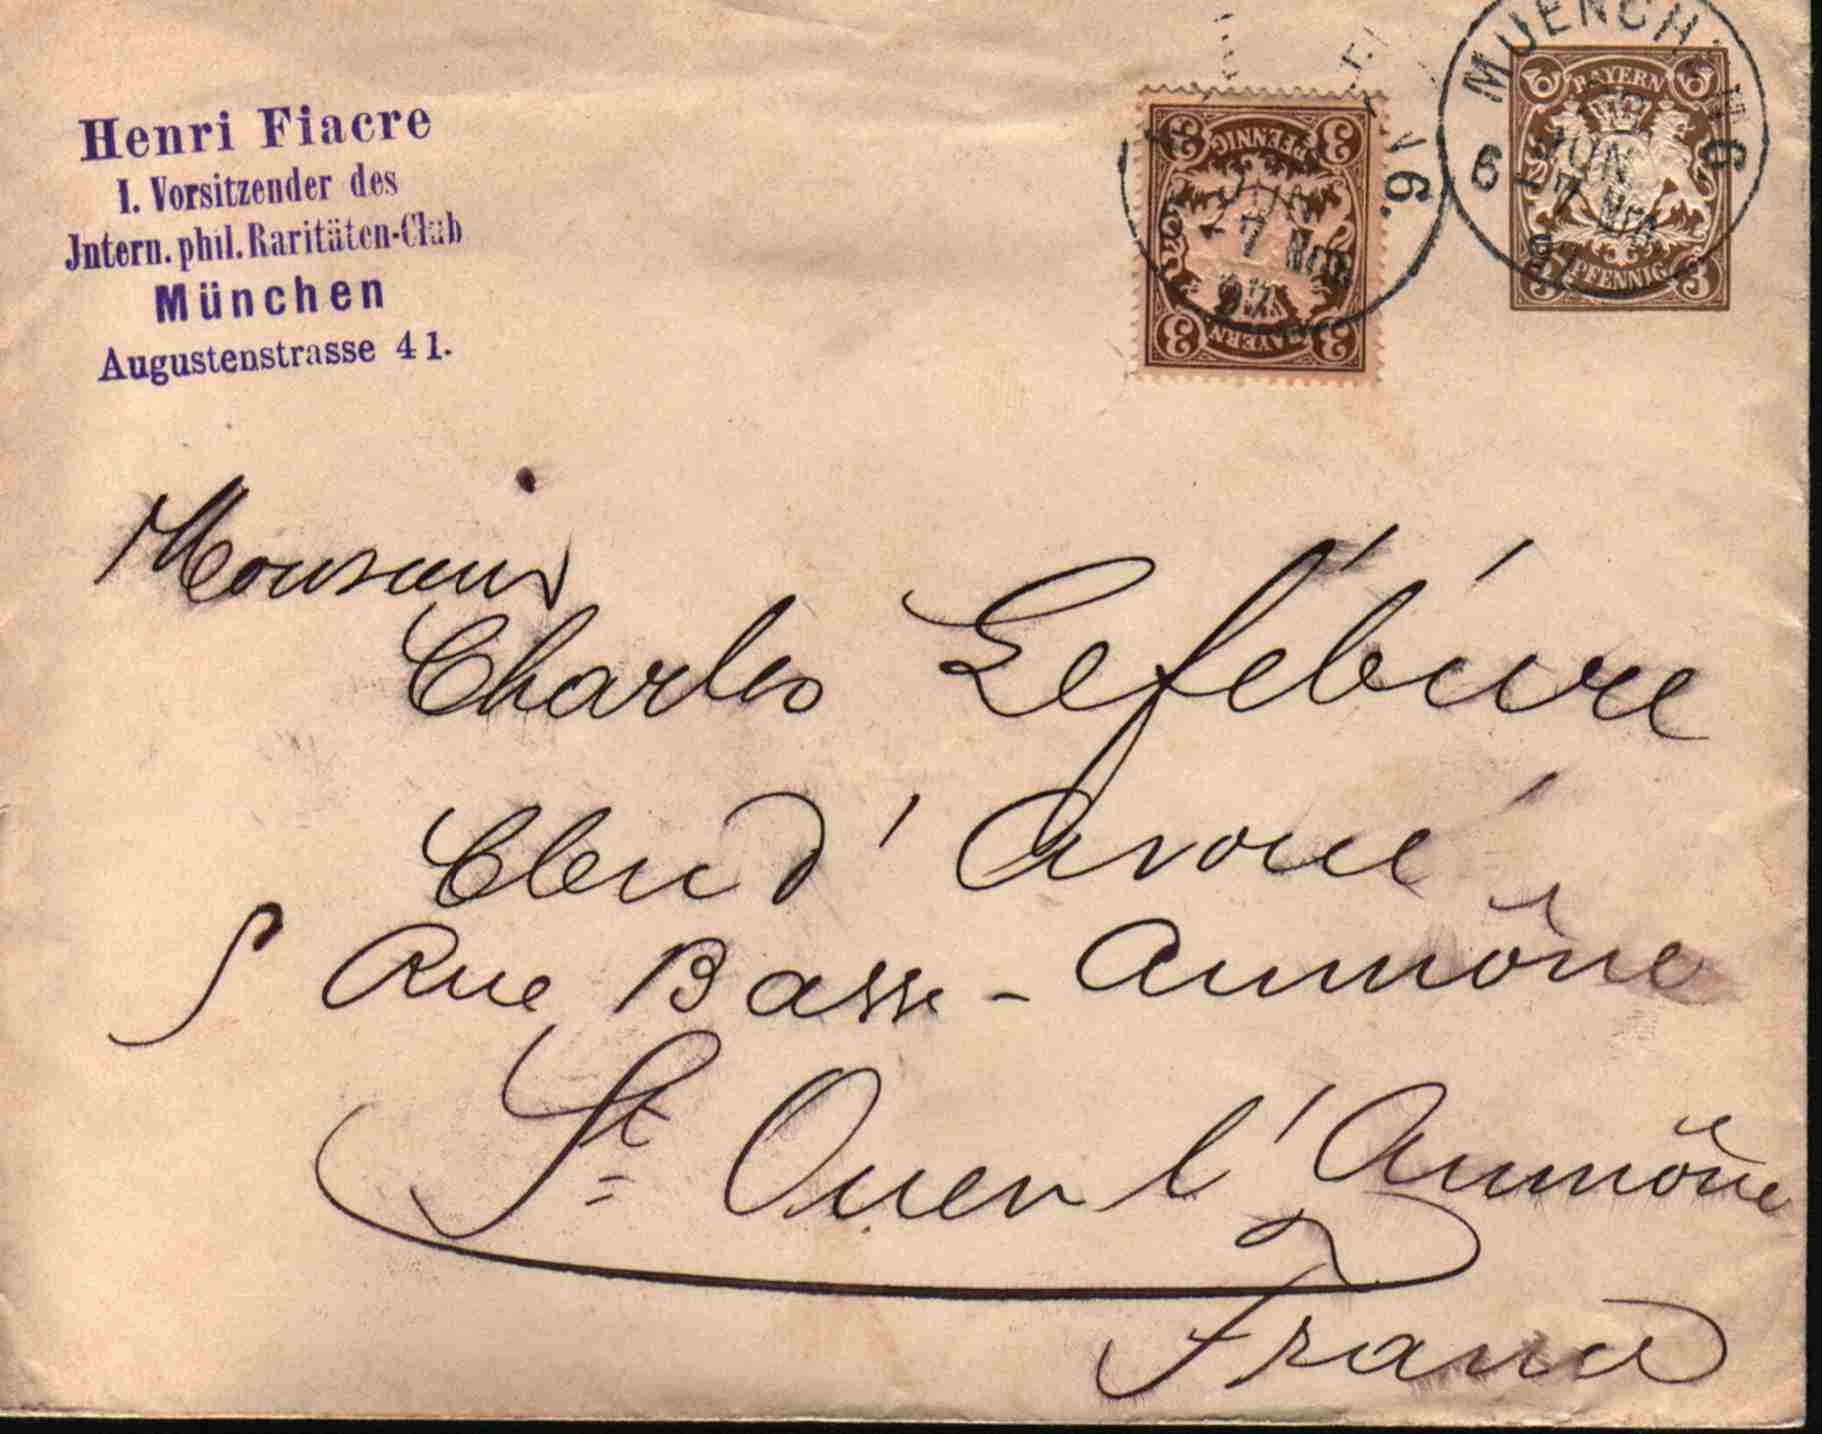 Henri Fiacre
I. Vorsitzender des
Intern. phil. Raritäten-Club
München
Augustenstrasse 41.
3 PFENNIG 3
JUN
7 Nm
3 BAYERN 3
MUENCHEN
V6.
6 JUN
7 Nm
BAYERN
3 PFENNIG 3
Monsieur
Charles Lefébure
Clerc d'Avoué
5 Rue Basse-Aumône
St Ouen l'Aumône
France